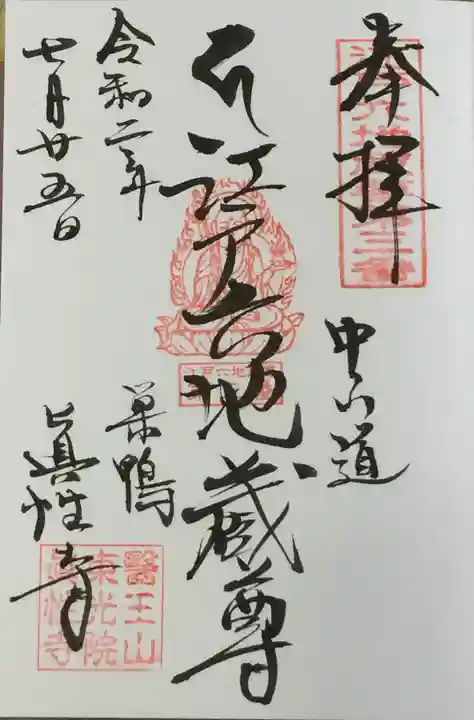 奉拝
江戸六地蔵第三番
中山道
江戸六地蔵尊
巣鴨
眞性寺
醫王山
東光院
眞性寺
令和二年
七月廿五日